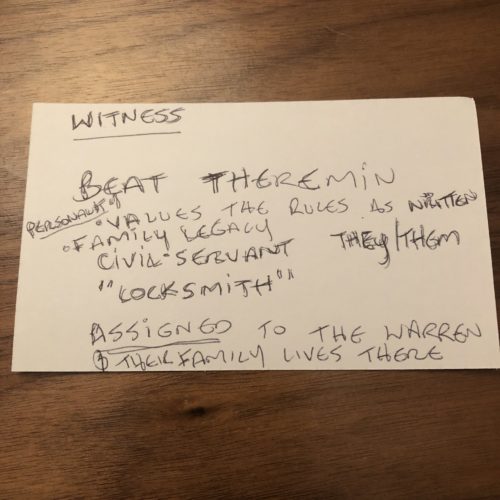 WITNESS
BEAT THEREMIN
PERSONALITY
• VALUES THE RULES AS WRITTEN
• FAMILY LEGACY
CIVIL SERVANT THEY/THEM
""LOCKSMITH""
ASSIGNED TO THE WARREN
THEIR FAMILY LIVES THERE